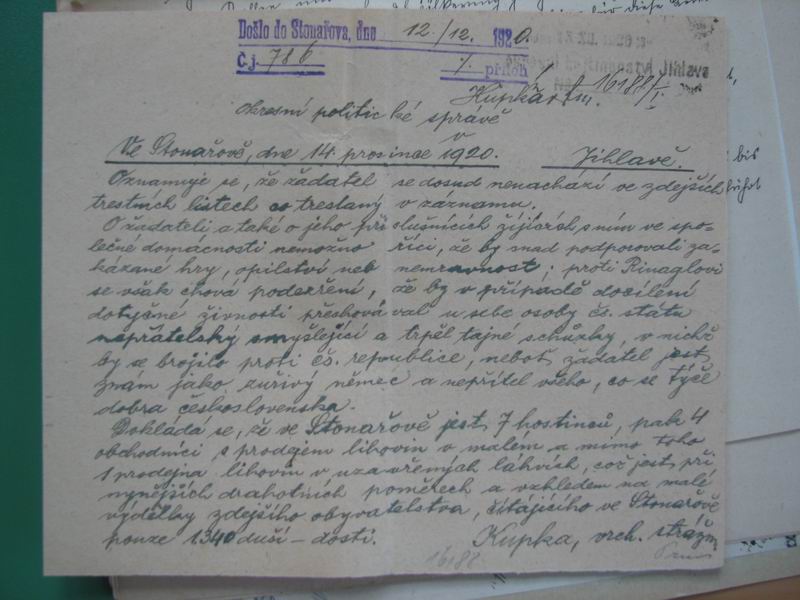 Došlo do Stonařova, dne 12./12. 1920.
Č.j. 786 /. příloh
Jihlava
16188/I.
Okresní politické správě
v
Ve Stonařově, dne 14. prosince 1920. Jihlavě.
Oznamuje se, že žadatel se dosud nenachází ve zdejších
trestních listech co trestaný v záznamu.
O žadateli a také o jeho příslušnících žijících s ním ve spo-
lečné domácnosti nemožno říci, že by snad podporovali za-
kázané hry, opilství neb nemravnost; proti Rinaglovi
se však chová podezření, že by v případě docílení
dotyčné živnosti přechovával u sebe osoby čs. státu
nepřátelsky smýšlející a trpěl tajné schůzky, v nichž
by se brojilo proti čs. republice, neboť žadatel jest
znám jako zuřivý němec a nepřítel všeho, co se týče
dobra československa.
Dokládá se, že ve Stonařově jest 7 hostinců, pak 4
obchodníci s prodejem lihovin v malém a mimo toho
1 prodejna lihovin v uzavřených láhvích, což jest při
nynějších drahotních poměrech a vzhledem na malé
výdělky zdejšího obyvatelstva, čítajícího ve Stonařově
pouze 1340 duší – dosti.
Kupka, vrch. strážm.
16188